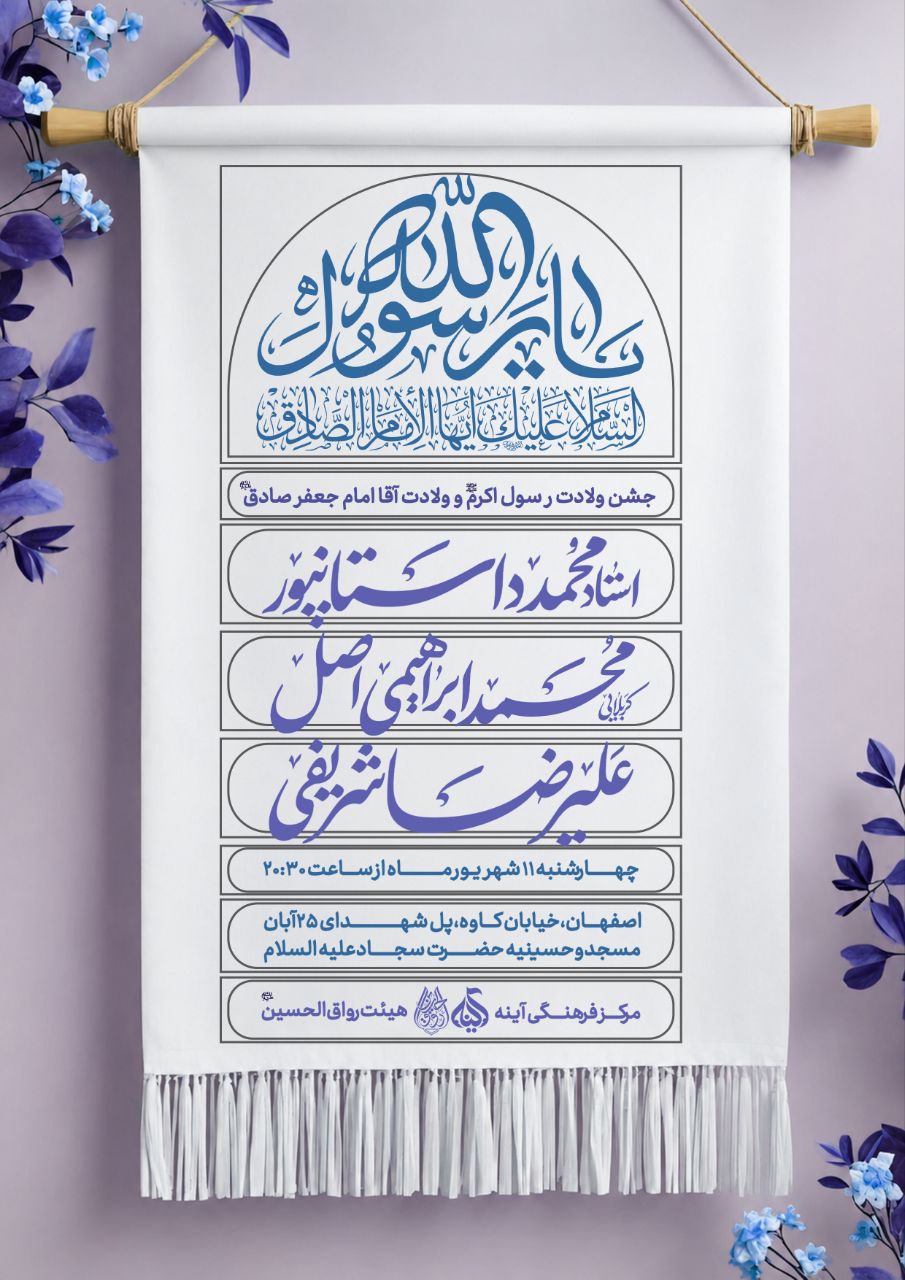 یا رسول الله
السلام علیك ایها الإمام الصادق
جشن ولادت رسول اکرم و ولادت آقا امام جعفر صادق
استاد محمد داستانپور
کربلایی محمد ابراهیمی اصل
علیرضا شریفی
چهارشنبه ۱۱ شهریور ماه از ساعت ۲۰:۳۰
اصفهان، خیابان کاوه، پل شهدای ۲۵ آبان
مسجد و حسینیه حضرت سجاد علیه السلام
مرکز فرهنگی آینه هیئت رواق الحسین